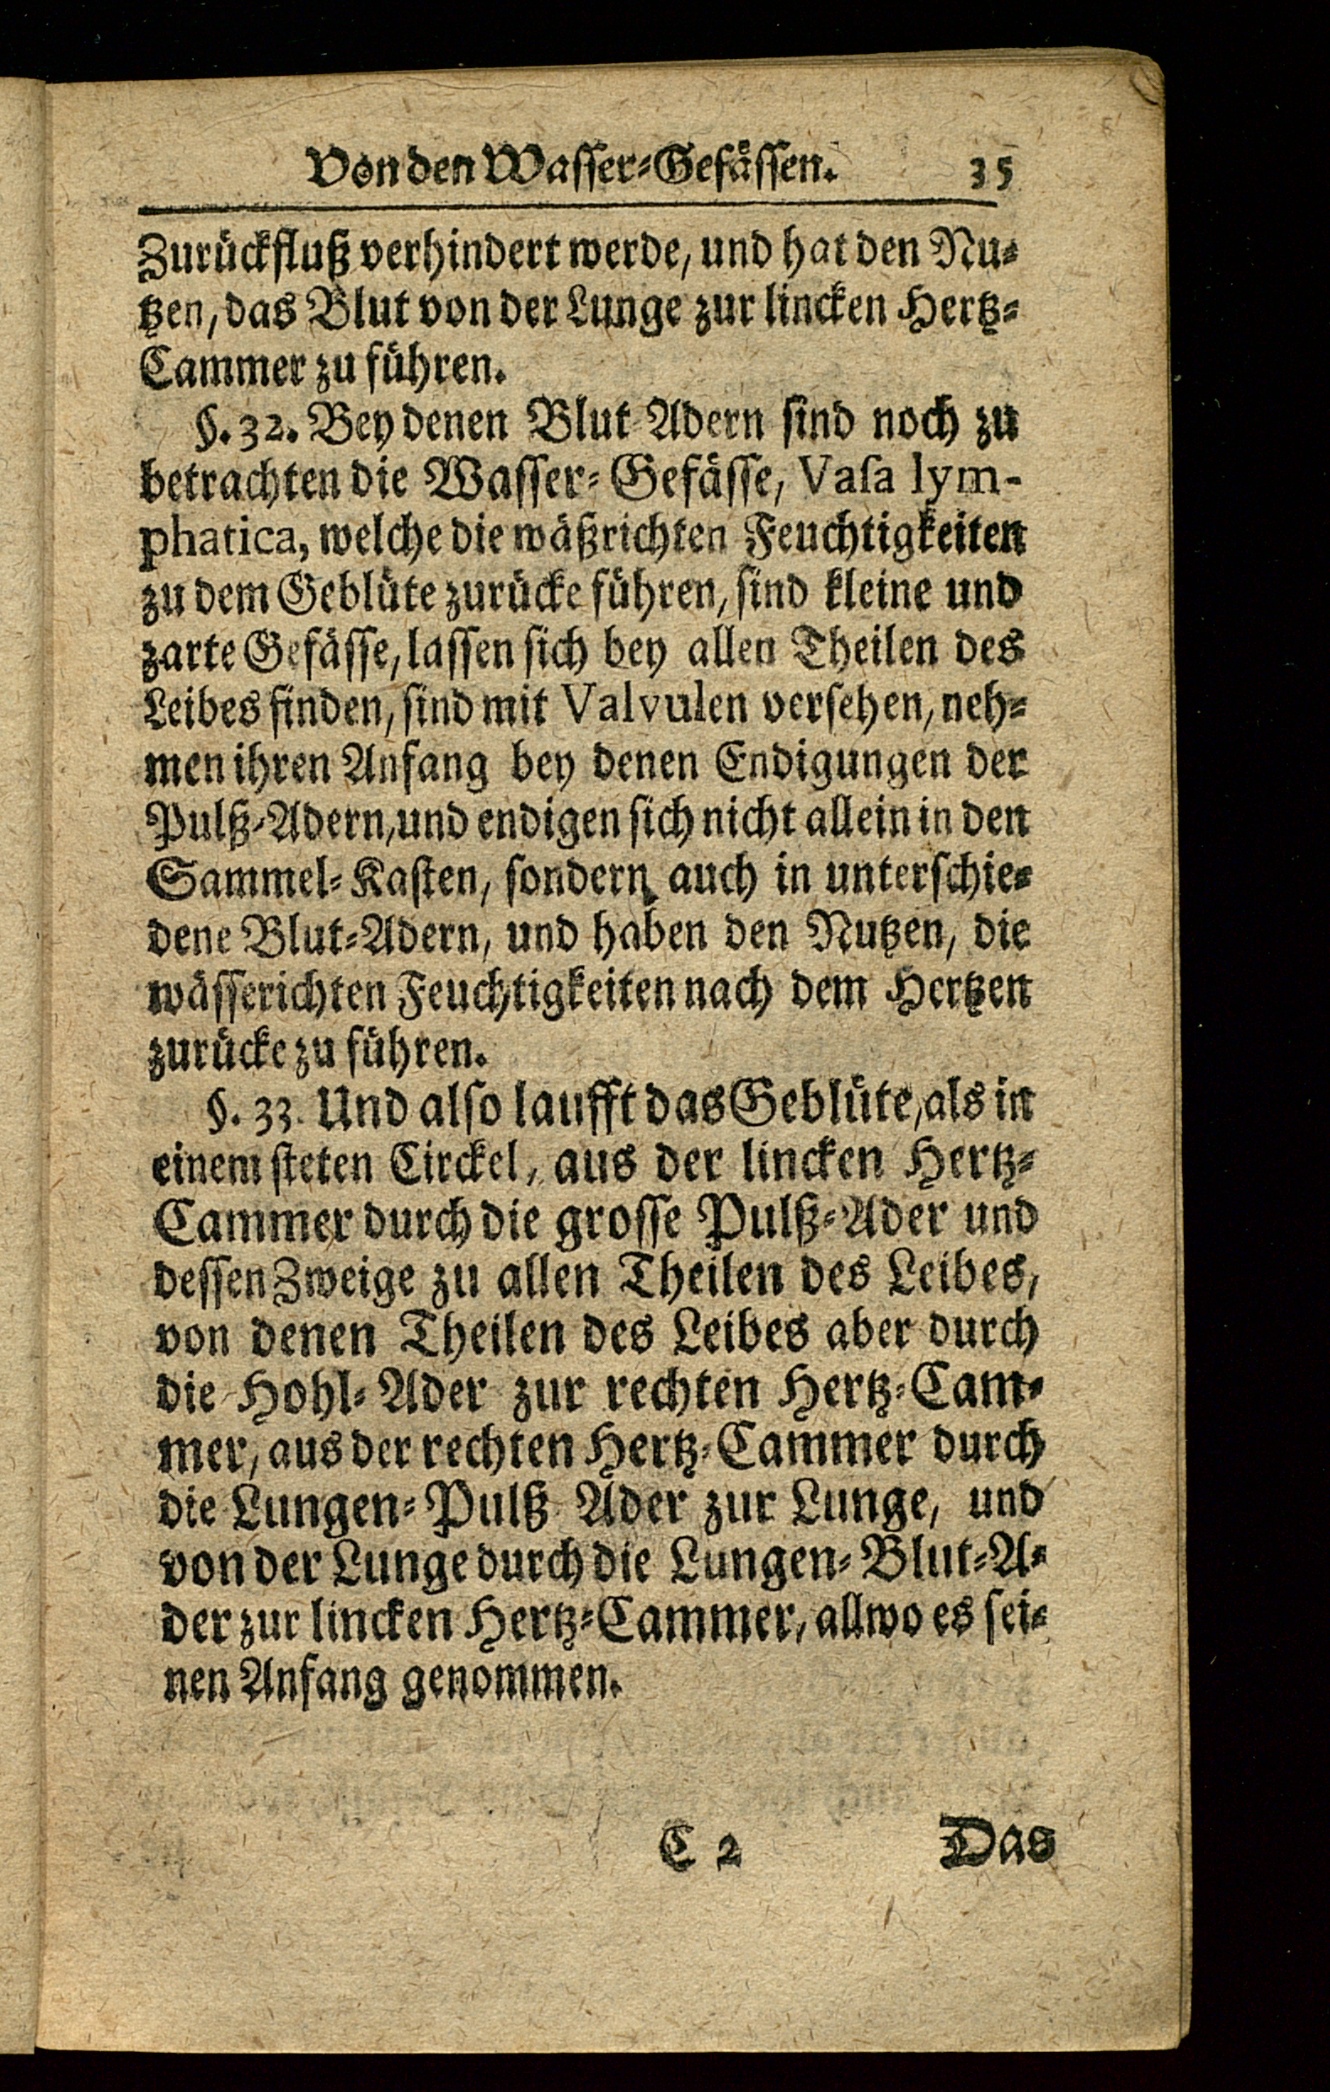 Von den Wasser-Gefässen. 35
Zurückfluß verhindert werde, und hat den Nu-
tzen, das Blut von der Lunge zur lincken Hertz-
Cammer zu führen.
§. 32. Bey denen Blut-Adern sind noch zu
betrachten die Wasser-Gefässe, Vasa lym-
phatica, welche die wäßrichten Feuchtigkeiten
zu dem Geblüte zurücke führen, sind kleine und
zarte Gefässe, lassen sich bey allen Theilen des
Leibes finden, sind mit Valvulen versehen, neh-
men ihren Anfang bey denen Endigungen der
Pulß-Adern, und endigen sich nicht allein in den
Sammel-Kasten, sondern auch in unterschie-
dene Blut-Adern, und haben den Nutzen, die
wässerichten Feuchtigkeiten nach dem Hertzen
zurücke zu führen.
§. 33. Und also laufft das Geblüte, als in
einem steten Circkel, aus der lincken Hertz-
Cammer durch die grosse Pulß-Ader und
dessen Zweige zu allen Theilen des Leibes,
von denen Theilen des Leibes aber durch
die Hohl-Ader zur rechten Hertz-Cam-
mer, aus der rechten Hertz-Cammer durch
die Lungen-Pulß Ader zur Lunge, und
von der Lunge durch die Lungen-Blut-A-
der zur lincken Hertz-Cammer, allwo es sei-
nen Anfang genommen.
C 2 Das